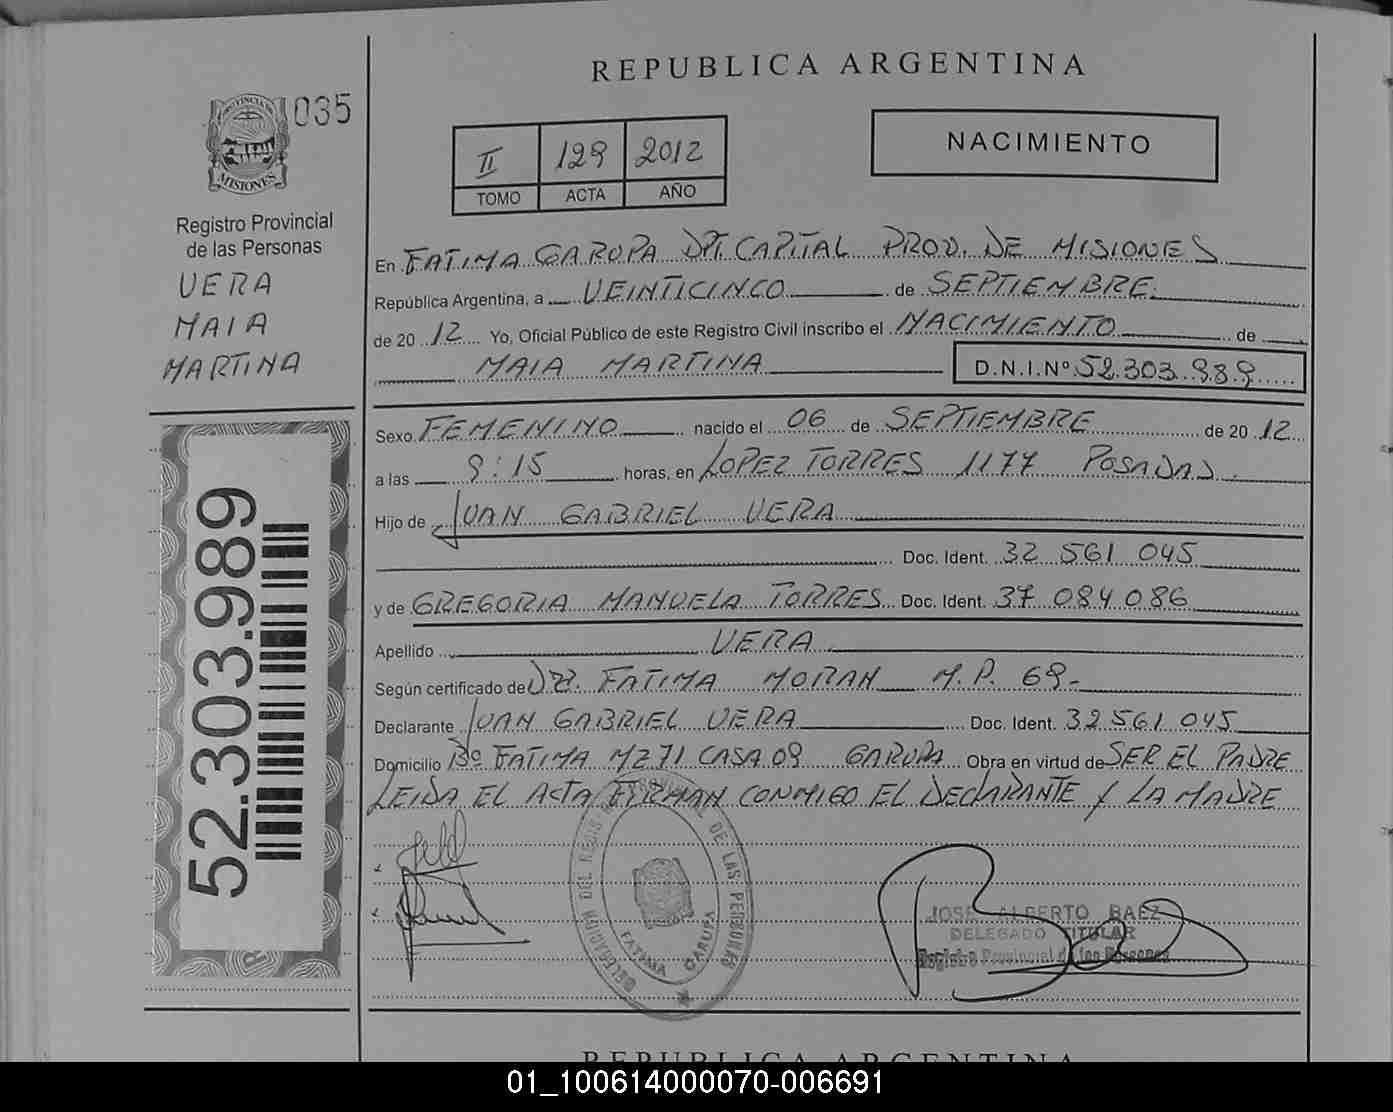 REPUBLICA ARGENTINA
035
PROVINCIA DE
MISIONES
NACIMIENTO
II 129 2012
TOMO ACTA AÑO
Registro Provincial
de las Personas
VERA
MAIA
MARTINA
En FATIMA GARUPA DPT. CAPITAL PROV. DE MISIONES
República Argentina, a VEINTICINCO de SEPTIEMBRE
de 20 12 Yo, Oficial Público de este Registro Civil inscribo el NACIMIENTO de
MAIA MARTINA D.N.I.Nº 52.303.989
Sexo FEMENINO nacido el 06 de SEPTIEMBRE de 20 12
a las 9:15 horas, en LOPEZ TORRES 1177 POSADAS.
Hijo de JUAN GABRIEL VERA
Doc. Ident. 32 561 045
y de GREGORIA MANUELA TORRES Doc. Ident. 37 084 086
Apellido VERA
Según certificado de DRA. FATIMA MORAN M.P. 69-
Declarante JUAN GABRIEL VERA Doc. Ident. 32 561 045
Domicilio Bº FATIMA MZ 71 CASA 09 GARUPA Obra en virtud de SER EL PADRE
LEIDA EL ACTA FIRMAN CONMIGO EL DECLARANTE Y LA MADRE
52.303.989
DELEGACION DEL REGISTRO PROVINCIAL DE LAS PERSONAS
FATIMA GARUPA
JOSE ALBERTO BAEZ
DELEGADO TITULAR
Registro Provincial de las Personas
REPUBLICA ARGENTINA
01_100614000070-006691